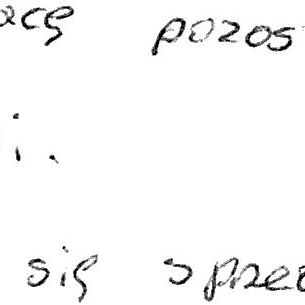 acę pozos
i.
się sprze